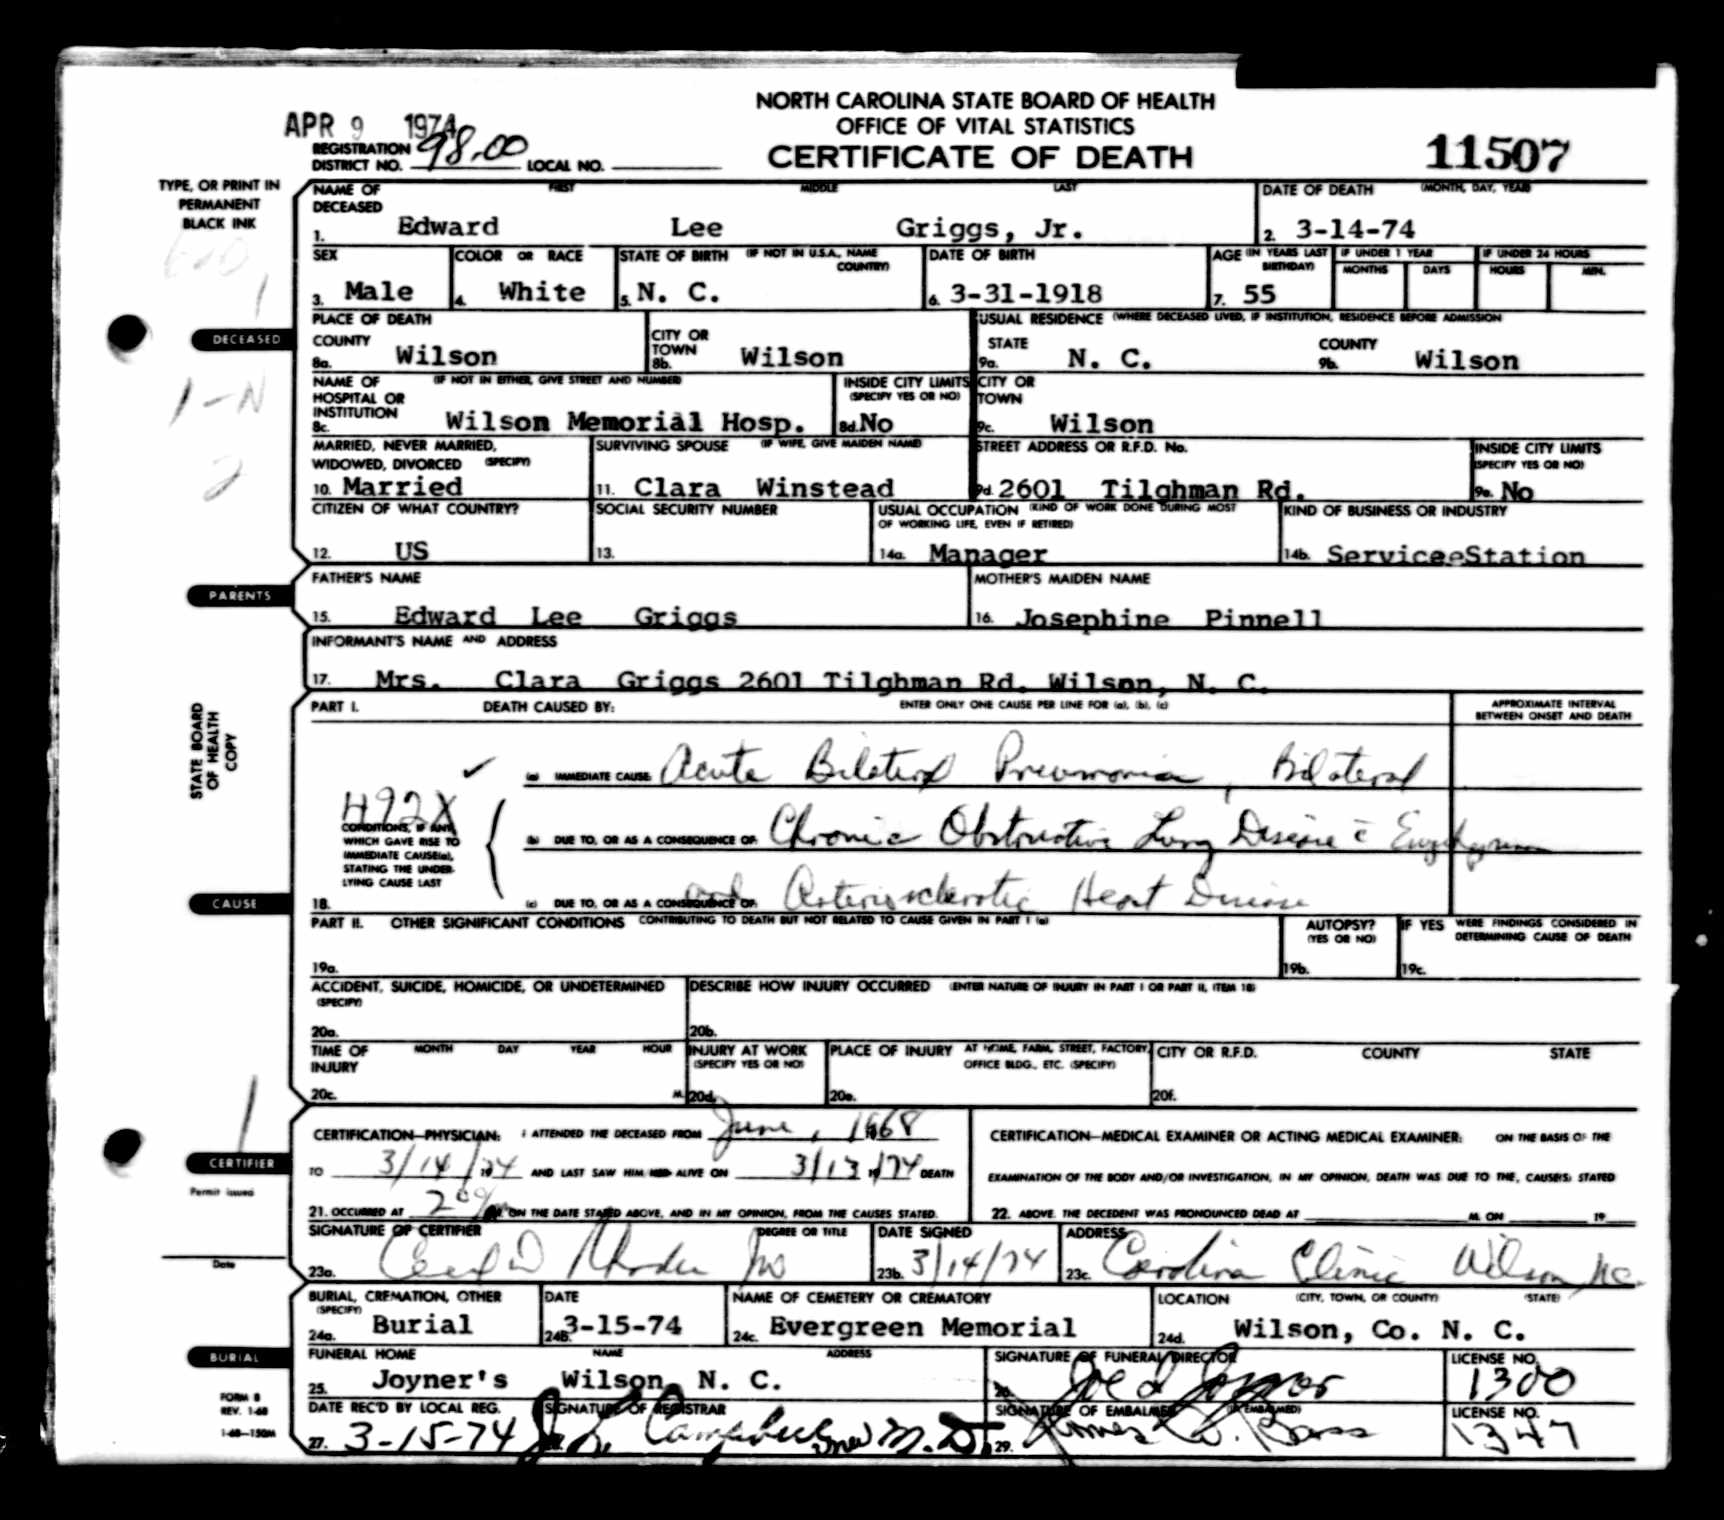 NORTH CAROLINA STATE BOARD OF HEALTH
OFFICE OF VITAL STATISTICS
CERTIFICATE OF DEATH
11507
APR 9 1974
REGISTRATION DISTRICT NO. 98.00 LOCAL NO.
TYPE, OR PRINT IN
PERMANENT
BLACK INK
NAME OF DECEASED FIRST MIDDLE LAST
1. Edward Lee Griggs, Jr.
DATE OF DEATH (MONTH, DAY, YEAR)
2. 3-14-74
SEX
3. Male
COLOR OR RACE
4. White
STATE OF BIRTH (IF NOT IN U.S.A., NAME COUNTRY)
5. N. C.
DATE OF BIRTH
6. 3-31-1918
AGE (IN YEARS LAST BIRTHDAY)
7. 55
IF UNDER 1 YEAR
MONTHS DAYS
IF UNDER 24 HOURS
HOURS MIN.
DECEASED
1-N
2
PLACE OF DEATH
COUNTY
8a. Wilson
CITY OR TOWN
8b. Wilson
USUAL RESIDENCE (WHERE DECEASED LIVED, IF INSTITUTION, RESIDENCE BEFORE ADMISSION
STATE
9a. N. C.
COUNTY
9b. Wilson
NAME OF HOSPITAL OR INSTITUTION (IF NOT IN EITHER, GIVE STREET AND NUMBER)
8c. Wilson Memorial Hosp.
INSIDE CITY LIMITS (SPECIFY YES OR NO)
8d. No
CITY OR TOWN
9c. Wilson
MARRIED, NEVER MARRIED, WIDOWED, DIVORCED (SPECIFY)
10. Married
SURVIVING SPOUSE (IF WIFE, GIVE MAIDEN NAME)
11. Clara Winstead
STREET ADDRESS OR R.F.D. No.
9d. 2601 Tilghman Rd.
INSIDE CITY LIMITS (SPECIFY YES OR NO)
9e. No
CITIZEN OF WHAT COUNTRY?
12. US
SOCIAL SECURITY NUMBER
13.
USUAL OCCUPATION (KIND OF WORK DONE DURING MOST OF WORKING LIFE, EVEN IF RETIRED)
14a. Manager
KIND OF BUSINESS OR INDUSTRY
14b. ServiceeStation
PARENTS
FATHER'S NAME
15. Edward Lee Griggs
MOTHER'S MAIDEN NAME
16. Josephine Pinnell
INFORMANT'S NAME AND ADDRESS
17. Mrs. Clara Griggs 2601 Tilghman Rd. Wilson, N. C.
STATE BOARD
OF HEALTH
COPY
CAUSE
PART I. DEATH CAUSED BY: ENTER ONLY ONE CAUSE PER LINE FOR (a), (b), (c)
APPROXIMATE INTERVAL
BETWEEN ONSET AND DEATH
(a) IMMEDIATE CAUSE: Acute Bilateral Pneumonia, Bilateral
492X
CONDITIONS, IF ANY,
WHICH GAVE RISE TO
IMMEDIATE CAUSE(a),
STATING THE UNDER-
LYING CAUSE LAST
(b) DUE TO, OR AS A CONSEQUENCE OF: Chronic Obstructive Lung Disease c̄ Emphysema
18. (c) DUE TO, OR AS A CONSEQUENCE OF: and Arteriosclerotic Heart Disease
PART II. OTHER SIGNIFICANT CONDITIONS CONTRIBUTING TO DEATH BUT NOT RELATED TO CAUSE GIVEN IN PART I (a)
19a.
AUTOPSY? (YES OR NO)
19b.
IF YES WERE FINDINGS CONSIDERED IN DETERMINING CAUSE OF DEATH
19c.
ACCIDENT, SUICIDE, HOMICIDE, OR UNDETERMINED (SPECIFY)
20a.
DESCRIBE HOW INJURY OCCURRED (ENTER NATURE OF INJURY IN PART I OR PART II, ITEM 18)
20b.
TIME OF INJURY MONTH DAY YEAR HOUR
20c. M.
INJURY AT WORK (SPECIFY YES OR NO)
20d.
PLACE OF INJURY AT HOME, FARM, STREET, FACTORY, OFFICE BLDG., ETC. (SPECIFY)
20e.
CITY OR R.F.D. COUNTY STATE
20f.
CERTIFIER
Permit issued
Date
CERTIFICATION—PHYSICIAN: I ATTENDED THE DECEASED FROM June, 1968
TO 3/14/1974 AND LAST SAW HIM HER ALIVE ON 3/13/1974 DEATH
21. OCCURRED AT 2 00 ON THE DATE STATED ABOVE, AND IN MY OPINION, FROM THE CAUSES STATED.
CERTIFICATION—MEDICAL EXAMINER OR ACTING MEDICAL EXAMINER: ON THE BASIS OF THE
EXAMINATION OF THE BODY AND/OR INVESTIGATION, IN MY OPINION, DEATH WAS DUE TO THE, CAUSE(S) STATED
22. ABOVE. THE DECEDENT WAS PRONOUNCED DEAD AT M. ON 19
SIGNATURE OF CERTIFIER DEGREE OR TITLE
23a. Cecil D Rhodes
DATE SIGNED
23b. 3/14/74
ADDRESS
23c. Carolina Clinic Wilson NC.
BURIAL
FORM 8
REV. 1-68
1-68—150M
BURIAL, CREMATION, OTHER (SPECIFY)
24a. Burial
DATE
24b. 3-15-74
NAME OF CEMETERY OR CREMATORY
24c. Evergreen Memorial
LOCATION (CITY, TOWN, OR COUNTY) (STATE)
24d. Wilson, Co. N. C.
FUNERAL HOME NAME ADDRESS
25. Joyner's Wilson, N. C.
SIGNATURE OF FUNERAL DIRECTOR
26. Joe L Joyner
LICENSE NO.
1300
DATE REC'D BY LOCAL REG.
27. 3-15-74
SIGNATURE OF REGISTRAR
J. L. Campbell M.D.
SIGNATURE OF EMBALMER (IF EMBALMED)
29. James W. Bass
LICENSE NO.
1347